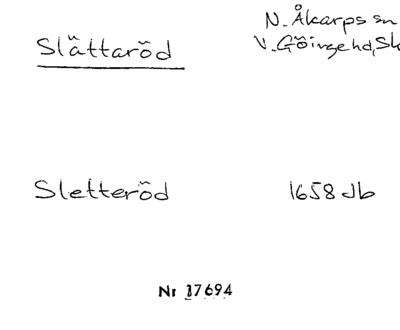 N. Åkarps sn
Slättaröd
V. Göingehd, Sk
Sletteröd 1658 Jb
Nr 17694